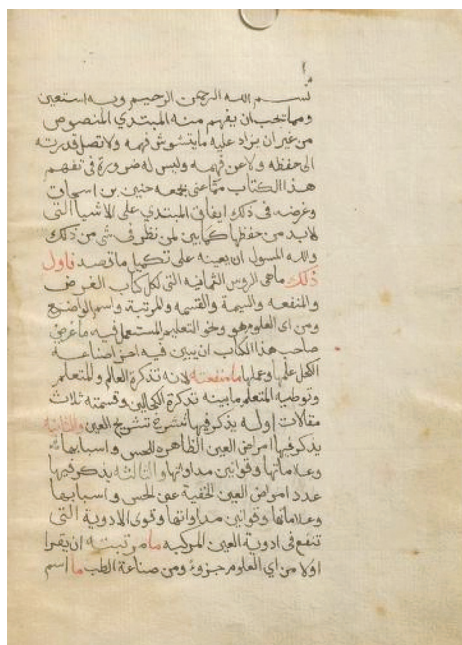 بسم الله الرحمن الرحيم وبه استعين
ومما يجب ان يفهم منه المبتدي المنصوص
من غير ان يزاد عليه ما يتشوش فهمه ولا تصل قدرته
الى حفظه ولا عن فهمه وليس له ضرورة في تفهم
هذا الكتاب مما عنى بجمعه حنين بن اسحاق
وغرضه في ذلك ايقاف المبتدي على الاشيا التى
لابد من حفظها كما يبين لمن نظر في شى من ذلك
والله المسول ان يعينه على تكميل ما قصد فاول
ذلك ماهى الروس الثمانيه التى لكل كتاب الغرض
والمنفعه والسيمة والقسمه والمرتبة واسم الواضع
ومن اى العلوم هو ونحو التعليم المستعمل فيه ما غرض
صاحب هذا الكتاب ان يبين فيه اجزا صناعة
الكحل علمها وعملها ما منفعته لانه تذكرة العالم وللمتعلم
وتوطية المتعلم ما يبنه تذكرة الكحالين وقسمته ثلاث
مقالات اوله يذكر فيها تشريح العين والثانية
يذكر فيها امراض العين الظاهره للحس واسبابها
وعلاماتها وقوانين مداواتها والثالثه يذكر فيها
عدد امراض العين الخفية عن الحس واسبابها
وعلاماتها وقوانين مداواتها وقوى الادوية التى
تنفع فى ادوية العين المركبه ما مرتبته ان يقرا
اولا من اي العلوم جزوءٌ ومن صناعة الطب ما اسم